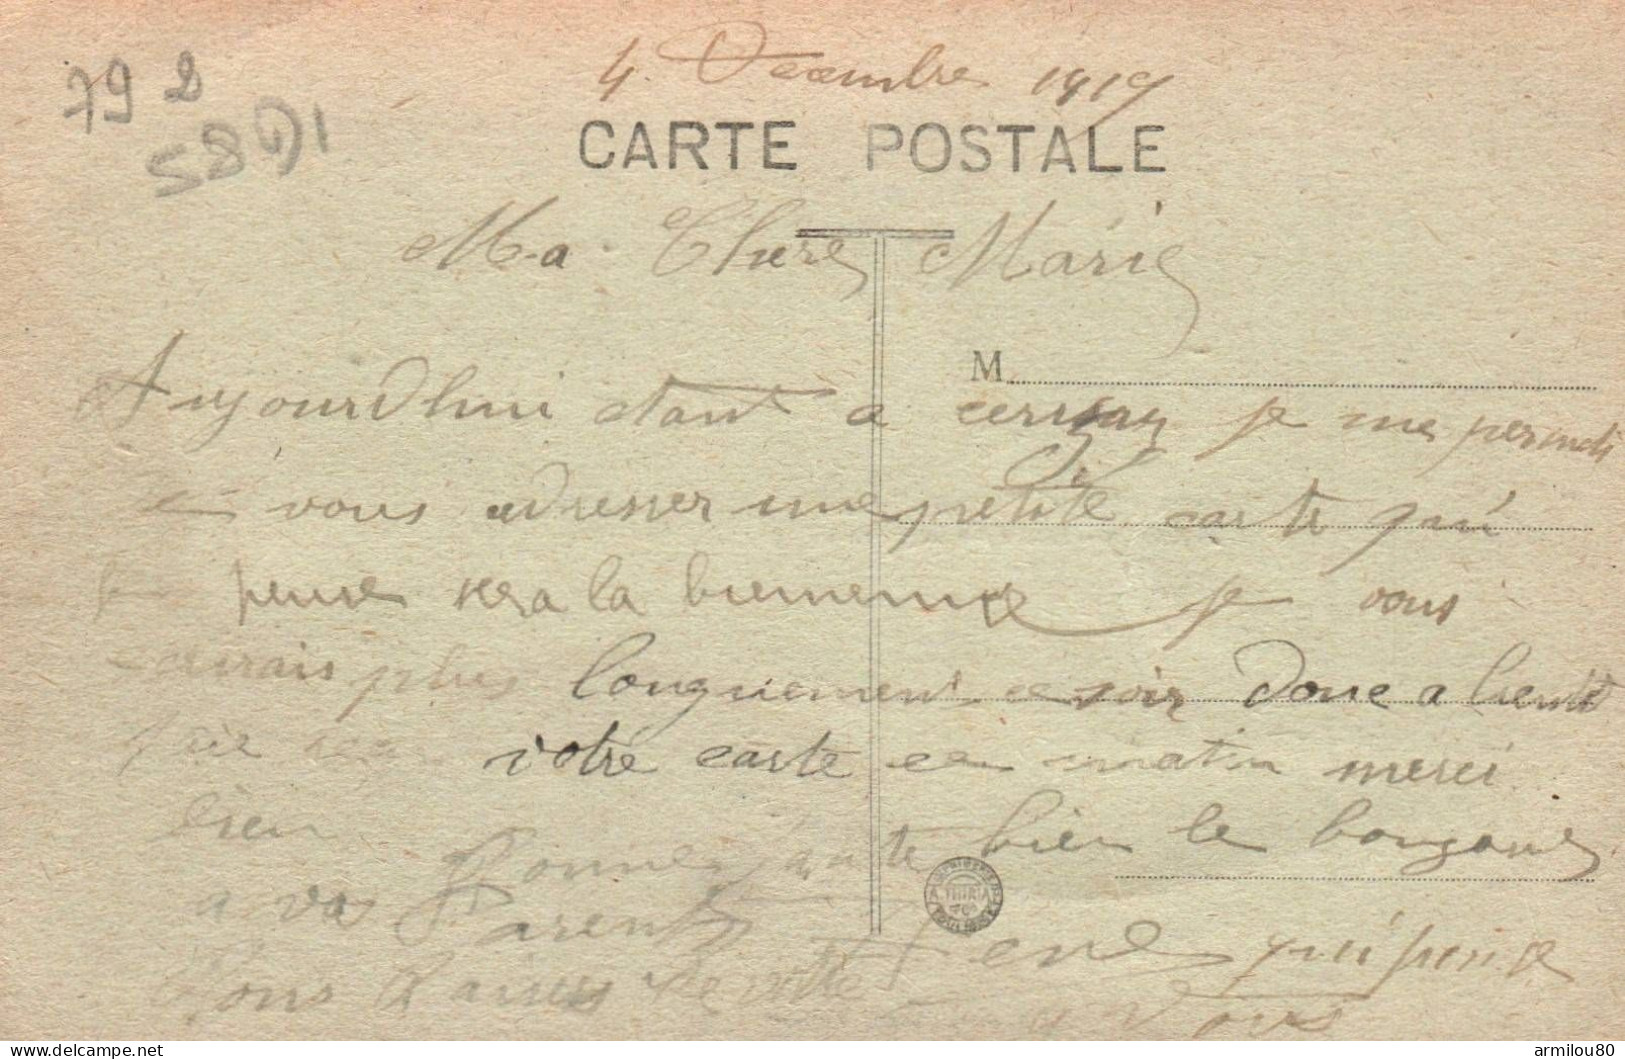 4 Décembre 1919
79 2
58 D1
CARTE POSTALE
Ma Chere Marie
M
Aujourdhui etant a cerizay je me permets
de vous adresser une petite carte qui
je pense sera la bienvenue je vous
ecrirais plus longuement ce soir Donc a bientot
votre carte ce matin merci
bien Donnez bien le bonjour
a vos Parents
Bons Baisers de votre Rene qui pense
a Vous
delcampe.net
armilou80